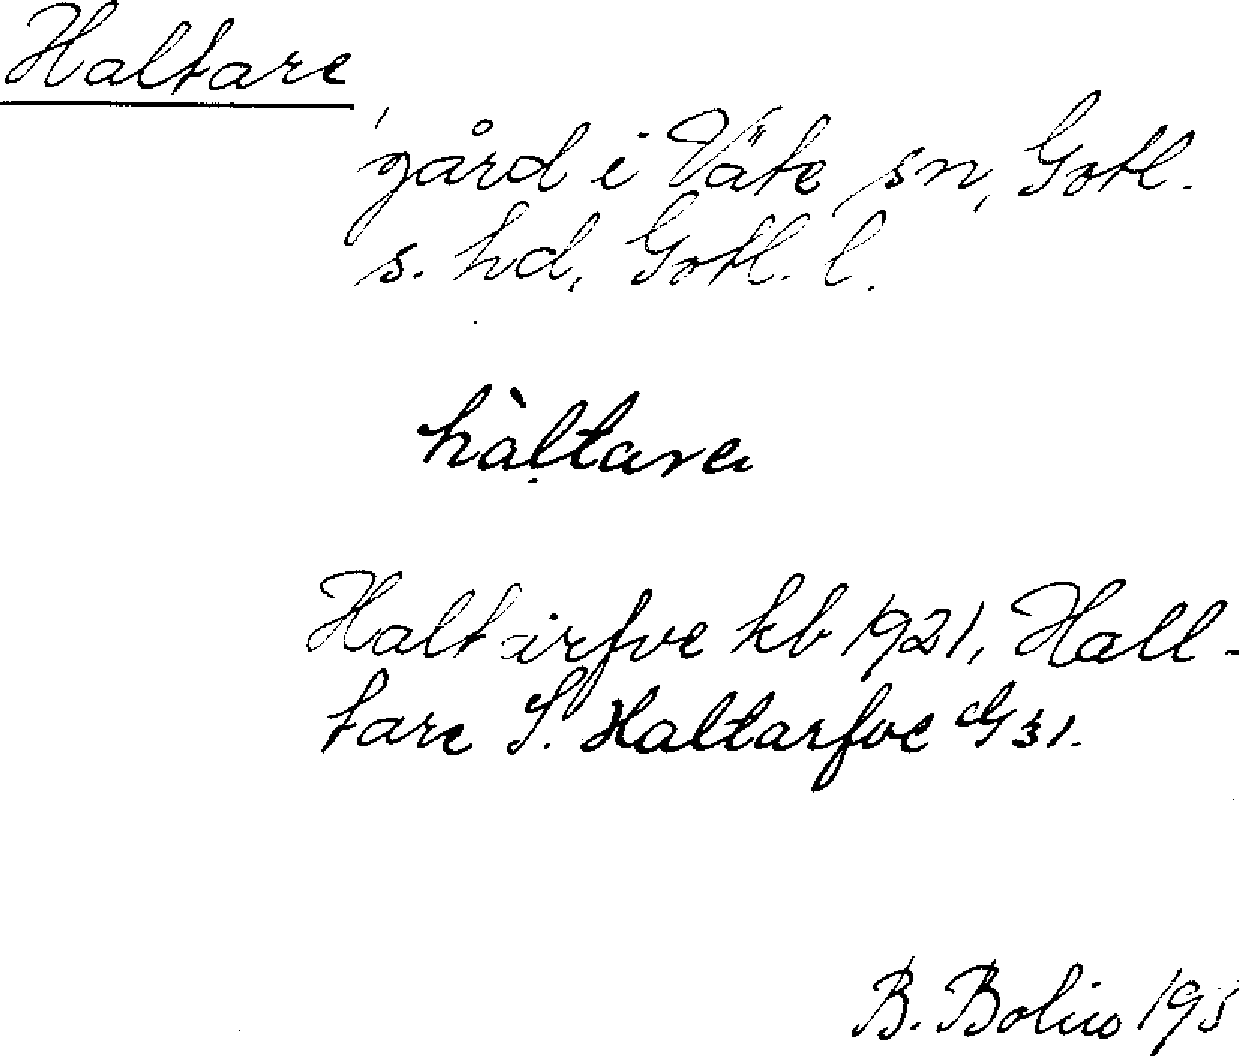 Haltare
gård i Väte sn, Gotl.
s. hd, Gotl. l.
hàltara
Haltarfve kb 1921, Hall-
tare S. Haltarfve G 31.
B. Bolin 195